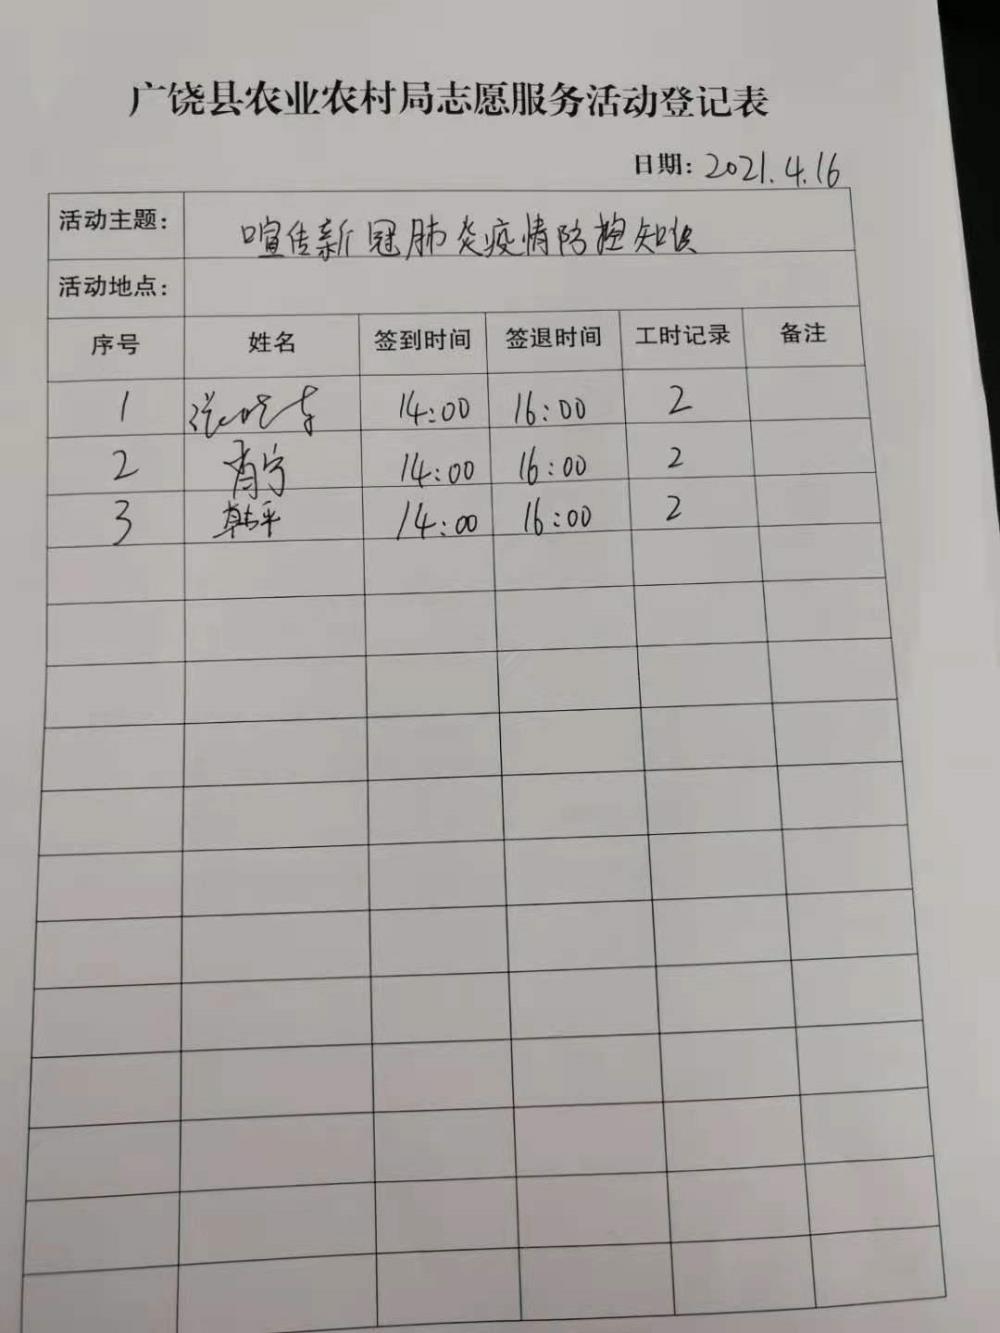 广饶县农业农村局志愿服务活动登记表
日期: 2021.4.16
活动主题: 喧传新冠肺炎疫情防控知识
活动地点:
序号 姓名 签到时间 签退时间 工时记录 备注
1 14:00 16:00 2
2 肖宁 14:00 16:00 2
3 韩平 14:00 16:00 2